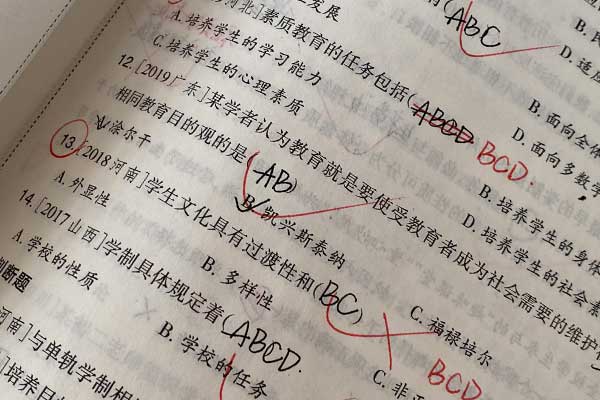 主发展
(ABC
河北]素质教育的任务包括(ABCD BCD.
A.培养学生的学习能力
B.面向全体
C.培养学生的心理素质
D.面向多数学
12.[2019广东]某学者认为教育就是要使受教育者成为社会需要的维护
相同教育目的观的是(AB)
A.涂尔干
B.凯兴斯泰纳
C.福禄培尔
B.培养学生的身体
D.培养学生的社会素
13.[2018河南]学生文化具有过渡性和(BC)
A.外显性
B.多样性
C.非正
BCD
14.[2017山西]学制具体规定着(ABCD.
A.学校的性质
B.学校的任务
判断题
河南]与单轨学制相
]培养目